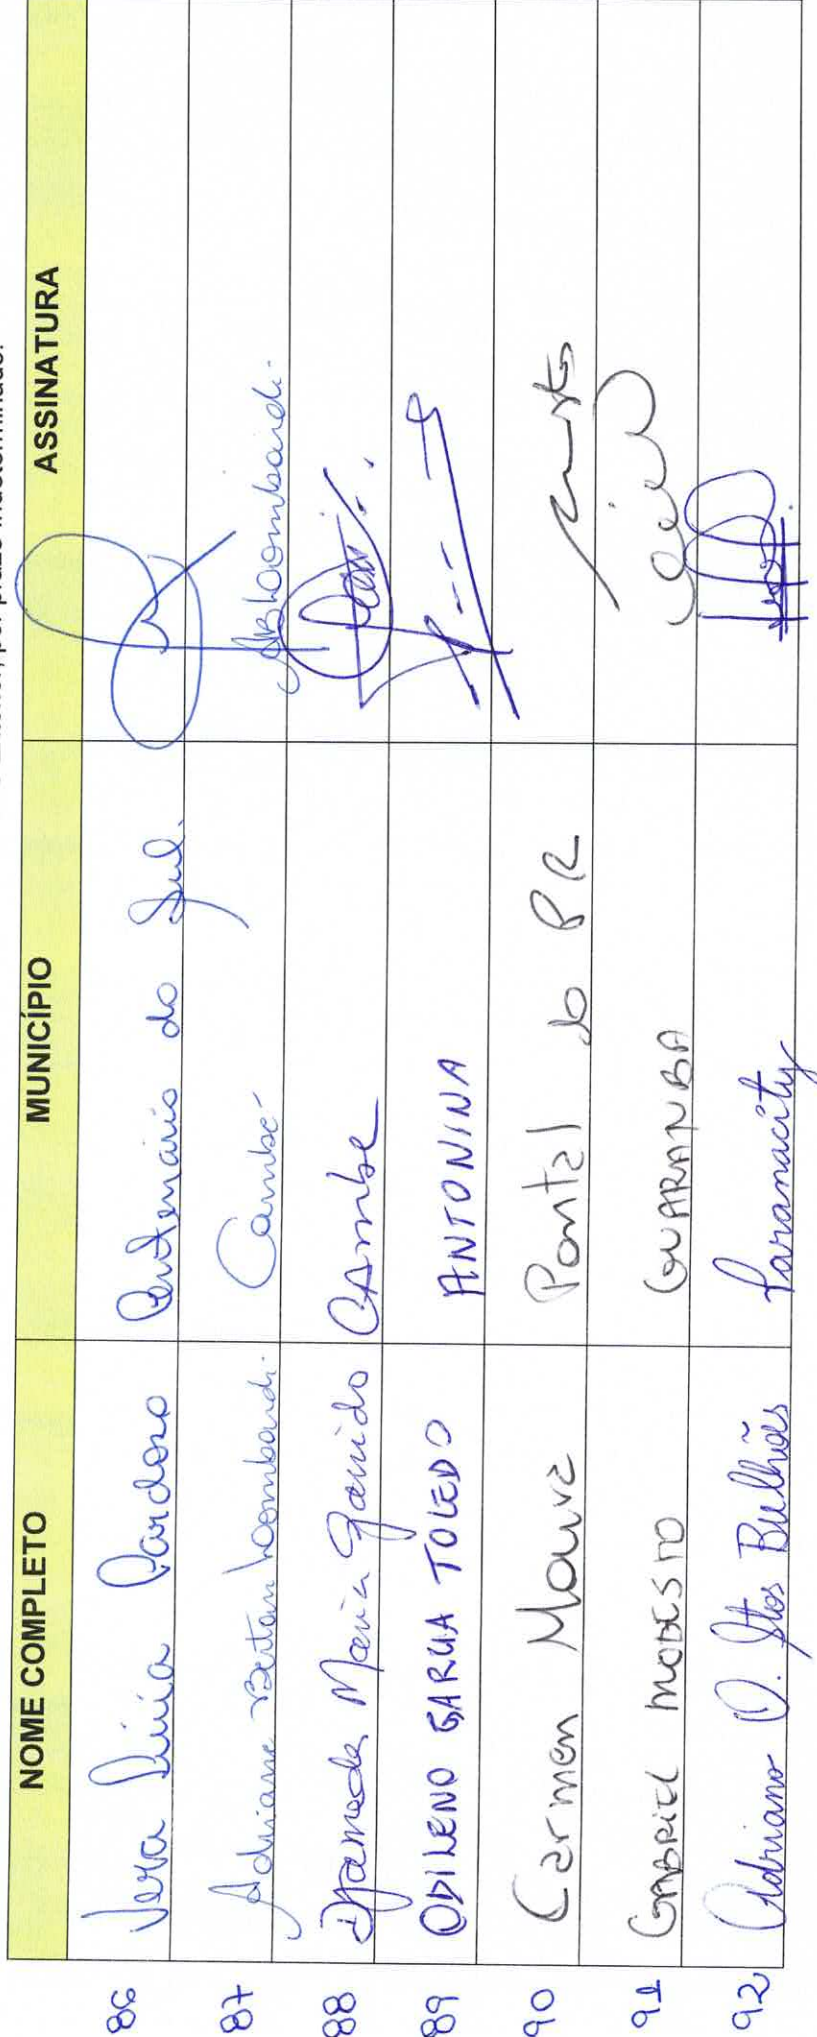 por prazo indeterminado.
NOME COMPLETO MUNICÍPIO ASSINATURA
86 Vera Lúcia Cardoso Centenário do Sul.
87 Adriane Bertan Loombardi. Cambé ABLoombardi.
88 Maria Garrido CAmbe
89 ODILENO GARCIA TOLEDO ANTONINA
90 Carmen Moura Pontal do PR
91 GABRIEL MODESTO GUARANBA
92 Adriano O. Stos Bulhões Paranacity